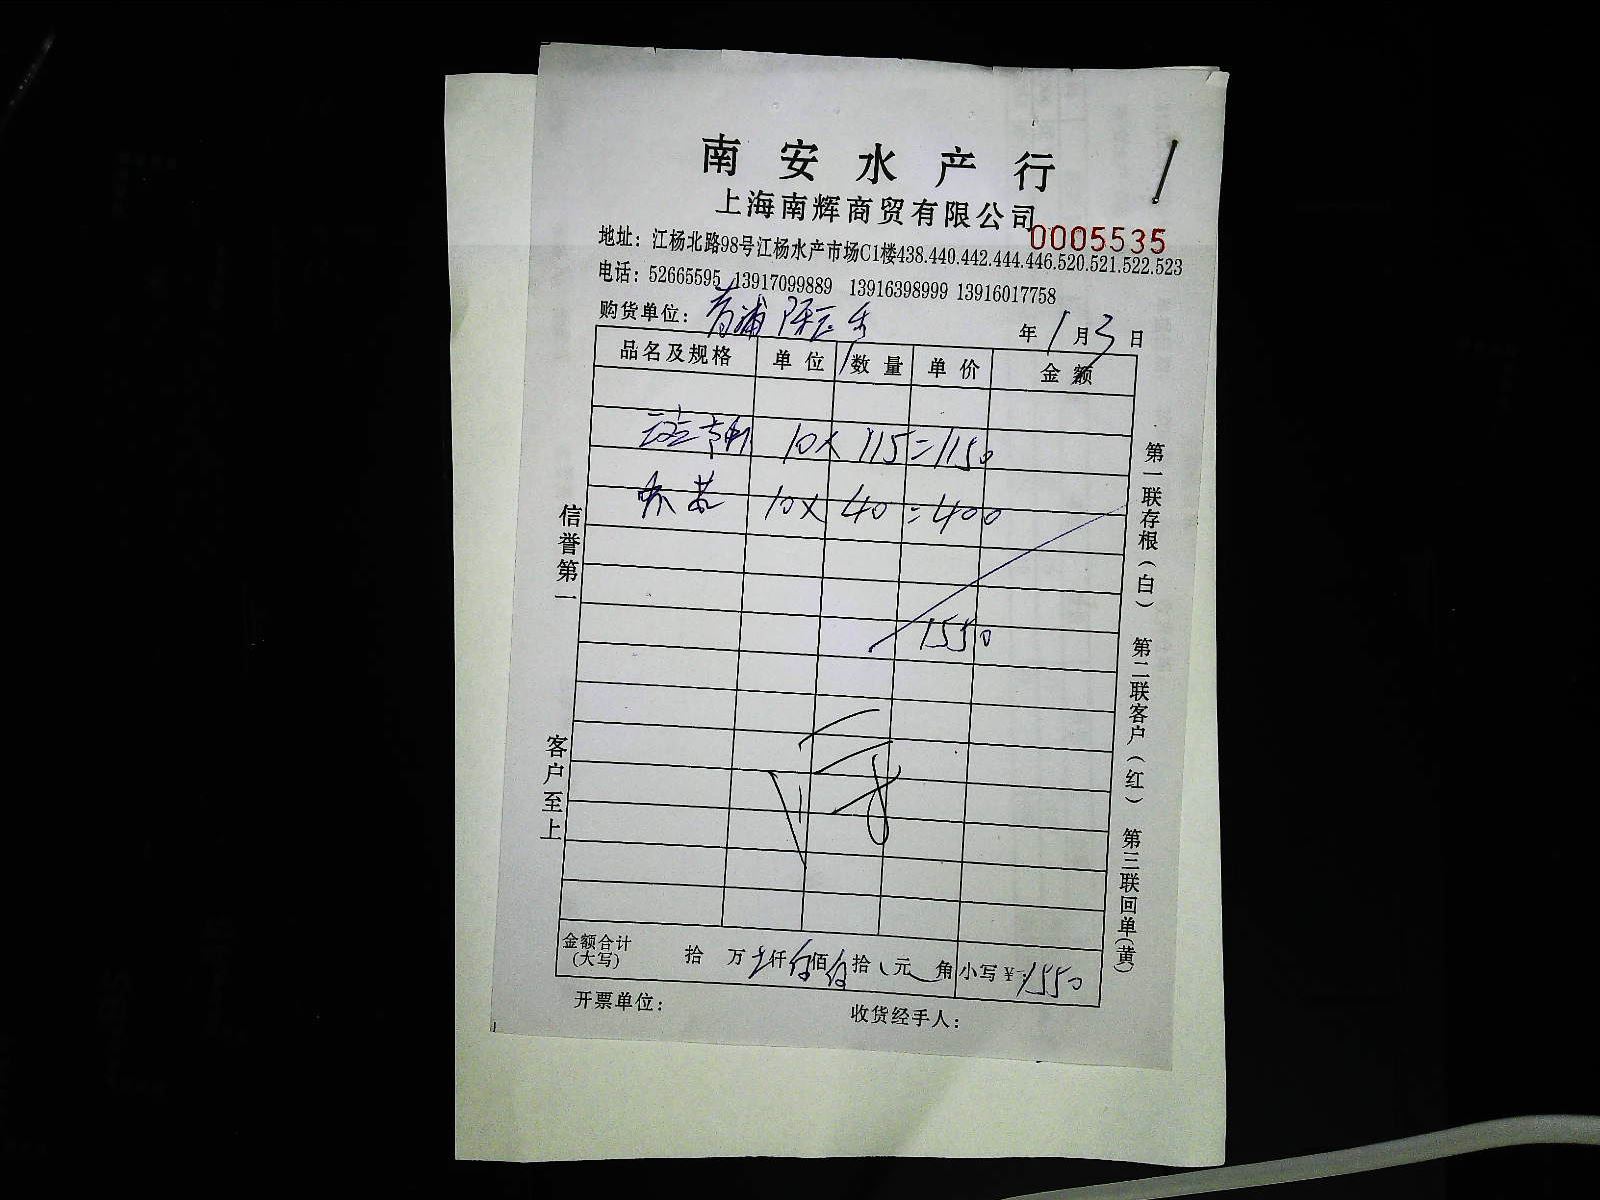 南安水产行
上海南辉商贸有限公司
0005535
地址：江杨北路98号江杨水产市场C1楼438.440.442.444.446.520.521.522.523
电话：52665595 13917099889 13916398999 13916017758
购货单位：青浦
年1月3日
品名及规格 单位 数量 单价 金额
10×115=1150
10×40=400
1550
金额合计(大写) 拾 万 仟 佰 拾 元 角 小写￥：1550
开票单位： 收货经手人：
信誉第一 客户至上
第一联存根(白) 第二联客户(红) 第三联回单(黄)